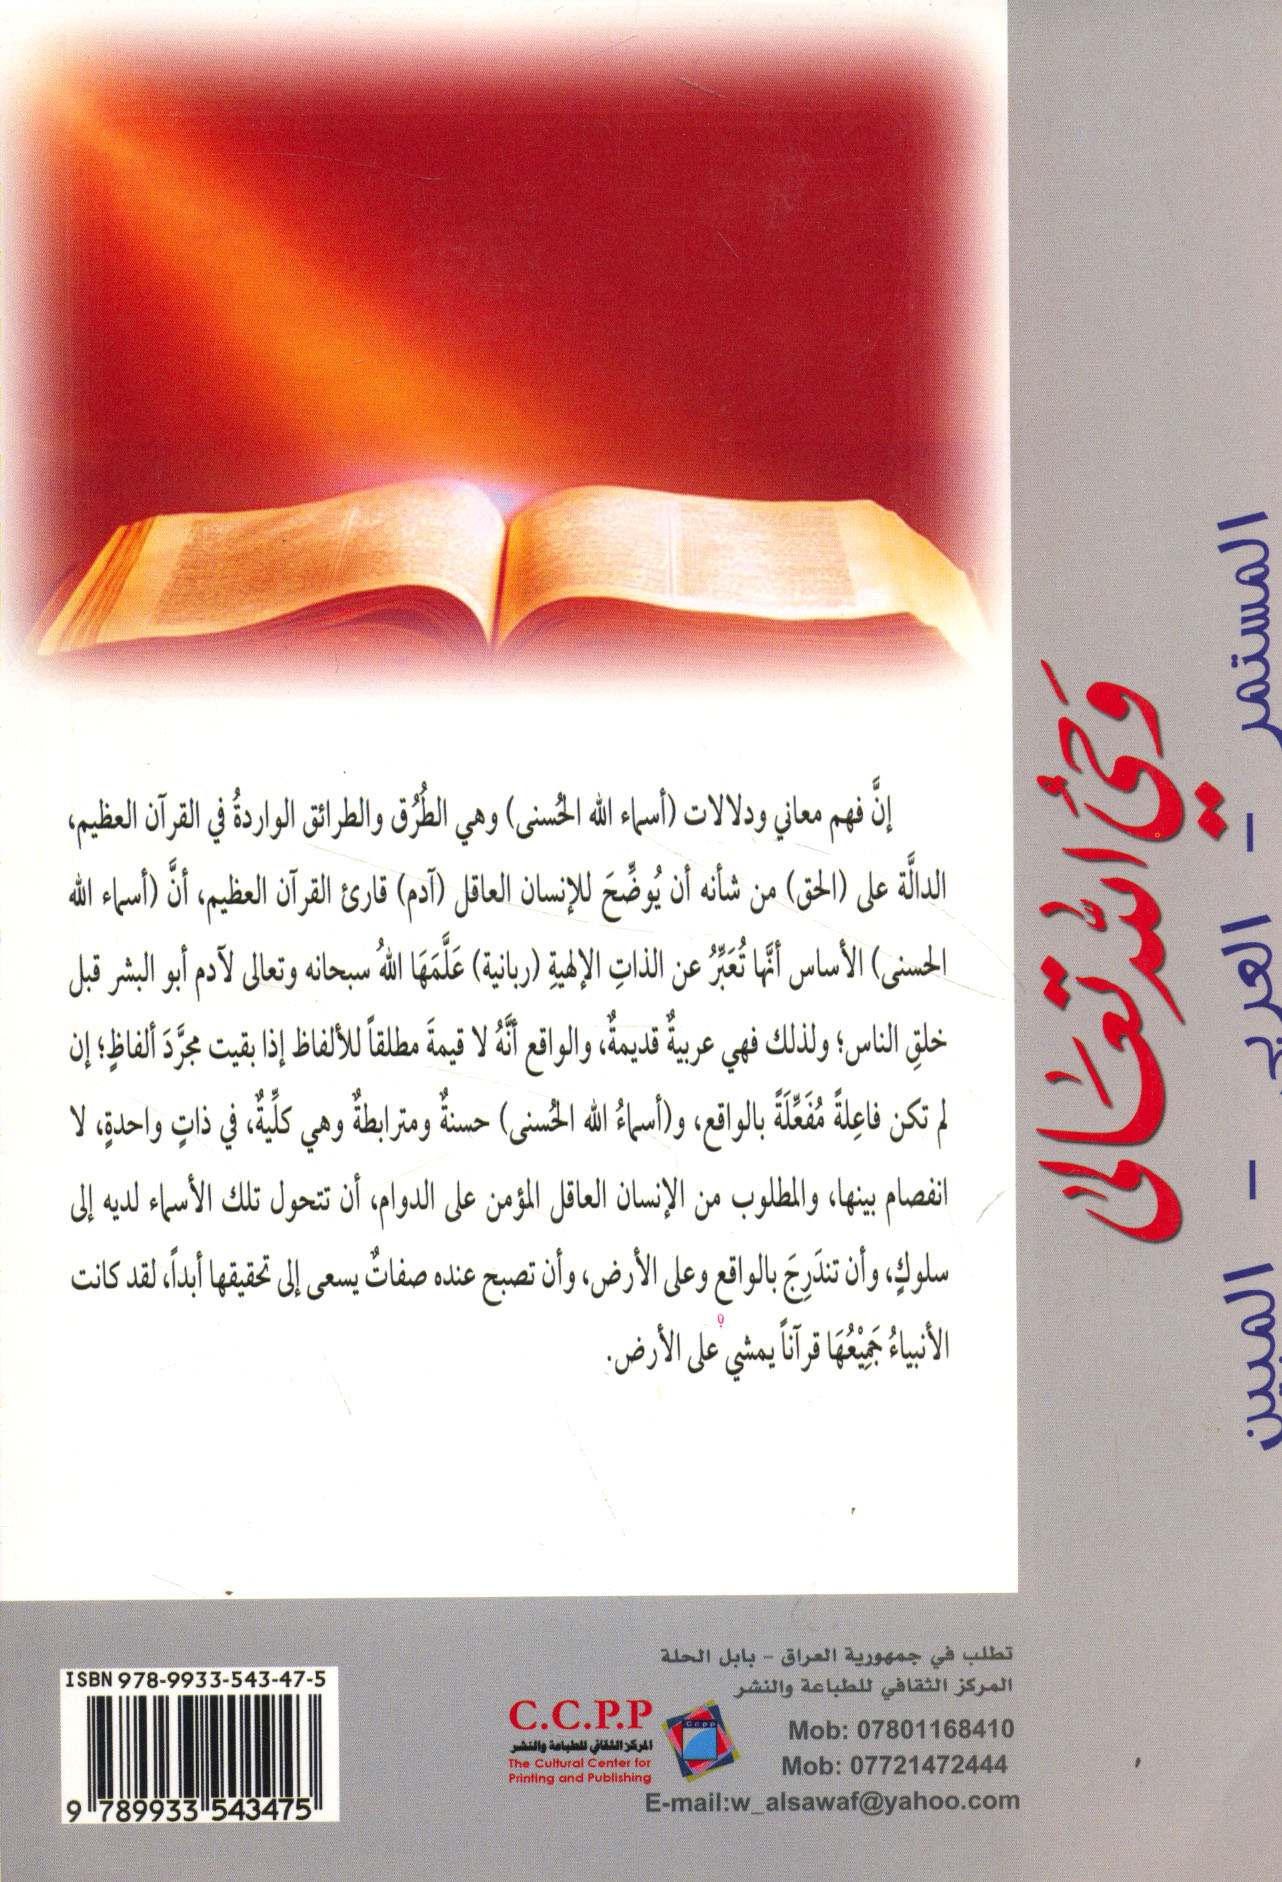 إنَّ فهم معاني ودلالات (أسماء الله الحُسنى) وهي الطُرُق والطرائق الواردةُ في القرآن العظيم،
الدالَّة على (الحق) من شأنه أن يُوضِّحَ للإنسان العاقل (آدم) قارئ القرآن العظيم، أنَّ (أسماء الله
الحسنى) الأساس أنَّها تُعَبِّرُ عن الذاتِ الإلهيةِ (ربانية) عَلَّمَهَا اللهُ سبحانه وتعالى لآدم أبو البشر قبل
خلقِ الناس؛ ولذلك فهي عربيةٌ قديمةٌ، والواقع أنَّهُ لا قيمةَ مطلقاً للألفاظ إذا بقيت مجرَّدَ ألفاظٍ؛ إن
لم تكن فاعِلةً مُفَعِّلَةً بالواقع، و(أسماءُ الله الحُسنى) حسنةٌ ومترابطةٌ وهي كلِّيةٌ، في ذاتٍ واحدةٍ، لا
انفصام بينها، والمطلوب من الإنسان العاقل المؤمن على الدوام، أن تتحول تلك الأسماء لديه إلى
سلوكٍ، وأن تندَرِجَ بالواقع وعلى الأرض، وأن تصبح عنده صفاتٌ يسعى إلى تحقيقها أبداً، لقد كانت
الأنبياءُ جَمِيْعُهَا قرآناً يمشي على الأرض.
وَحيُ اللّٰه تعَالى
المستمر - العربي - المبين
تطلب في جمهورية العراق - بابل الحلة
المركز الثقافي للطباعة والنشر
Mob: 07801168410
Mob: 07721472444
E-mail:w_alsawaf@yahoo.com
Ccpp
C.C.P.P
المركز الثقافي للطباعة والنشر
The Cultural Center for
Printing and Publishing
ISBN 978-9933-543-47-5
9 789933 543475